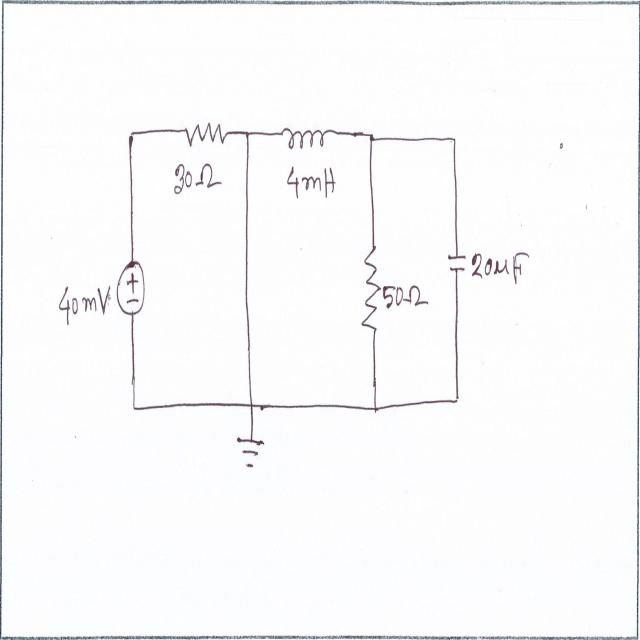 30Ω
4mH
40mV
+
−
50Ω
20μF